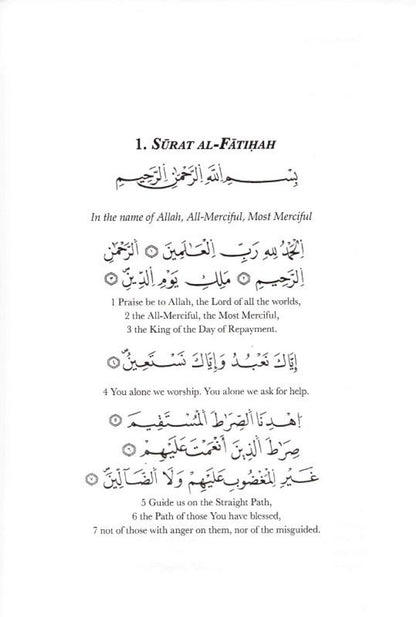 1. SŪRAT AL-FĀTIḤAH
بِسْمِ اللَّهِ الرَّحْمَٰنِ الرَّحِيمِ
In the name of Allah, All-Merciful, Most Merciful
اِلْحَمْدُ لِلهِ رَبِّ اِلْعَالَمِينَ ١ اَلرَّحْمَٰنِ
اِلرَّحِيمِ ٢ مَلِكِ يَوْمِ اِلدِّينِ ٣
1 Praise be to Allah, the Lord of all the worlds,
2 the All-Merciful, the Most Merciful,
3 the King of the Day of Repayment.
إِيَّاكَ نَعْبُدُ وَإِيَّاكَ نَسْتَعِينُ ٤
4 You alone we worship. You alone we ask for help.
اِهْدِنَا اَلصِّرَاطَ اَلْمُسْتَقِيمَ ٥
صِرَاطَ اَلذِينَ أَنْعَمْتَ عَلَيْهِمْ ٦
غَيْرِ اِلْمَغْضُوبِ عَلَيْهِمْ وَلَا اَلضَّالِّينَ ٧
5 Guide us on the Straight Path,
6 the Path of those You have blessed,
7 not of those with anger on them, nor of the misguided.